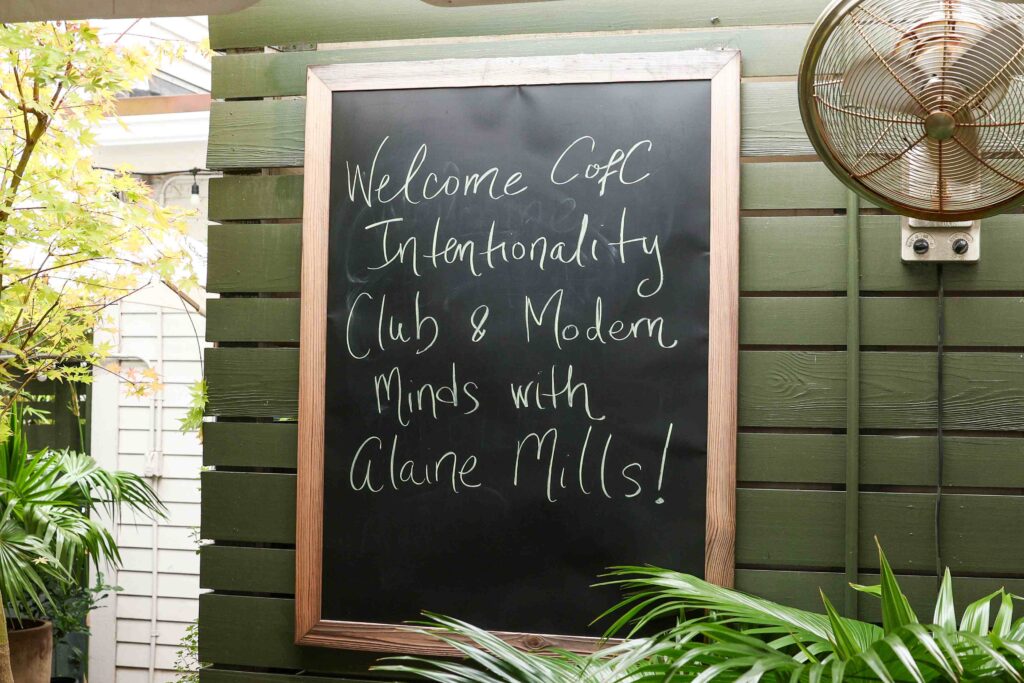 Welcome CofC
Intentionality
Club & Modern
Minds with
Alaine Mills!